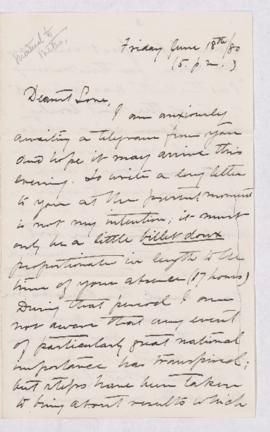 Friday June 18th/80
(5. p.m.)
Dearest Love,
I am anxiously
awaiting a telegram from you
and hope it may arrive this
evening. To write a long letter
to you at the present moment
is not my intention; it must
only be a little billet doux
proportionate in length to the
time of your absence (17 hours)
During that period I am
not aware that any event
of particularly great national
importance has transpired;
but steps have been taken
to bring about results which